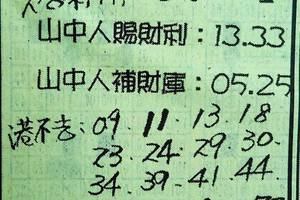 山中人賜財利：13.33
山中人補財庫：05.25
港不吉：09.11.13.18
23.24.29.30.
34.39.41.44.